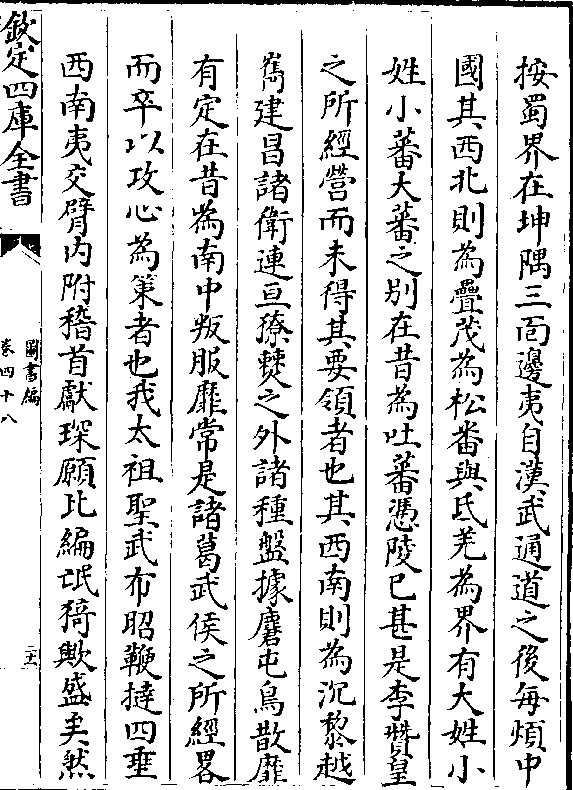 按蜀界在坤隅三面邊夷自漢武通道之後每煩中
國其西北則為疊茂為松番與氐羌為界有大姓小
姓小蕃大蕃之別在昔為吐蕃憑陵已甚是李贊皇
之所經營而未得其要領者也其西南則為沉黎越
嶲建昌諸衛連亘獠僰之外諸種盤據麕屯鳥散靡
有定在昔為南中叛服靡常是諸葛武侯之所經畧
而卒以攻心為策者也我太祖聖武布昭鞭撻四垂
西南夷交臂內附稽首獻琛願比編氓猗歟盛矣然
欽定四庫全書
圖書編
卷四十八